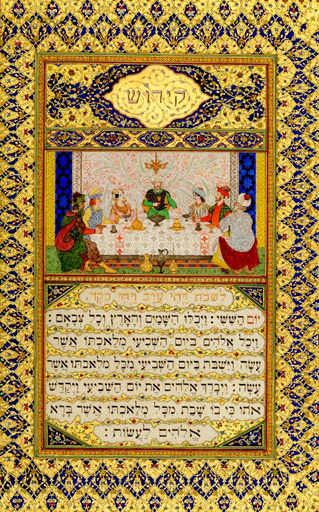 קידוש
לשבת ויהי ערב ויהי בקר
יום הששי: ויכלו השמים והארץ וכל צבאם:
ויכל אלהים ביום השביעי מלאכתו אשר
עשה וישבת ביום השביעי מכל מלאכתו אשר
עשה: ויברך אלהים את יום השביעי ויקדש
אתו כי בו שבת מכל מלאכתו אשר ברא
אלהים לעשות: